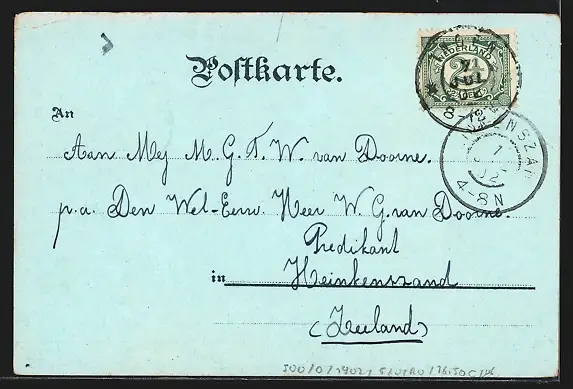 NEDERLAND
2½
CENT
JUL
Postkarte.
An
Aan Mej M. G. T. W. van Doorne.
p.a. Den Wel-Eerw. Heer W. G. van Doorne.
Predikant
in Heinkenszand
(Zeeland)
ENSZA
1
02
4-8 N